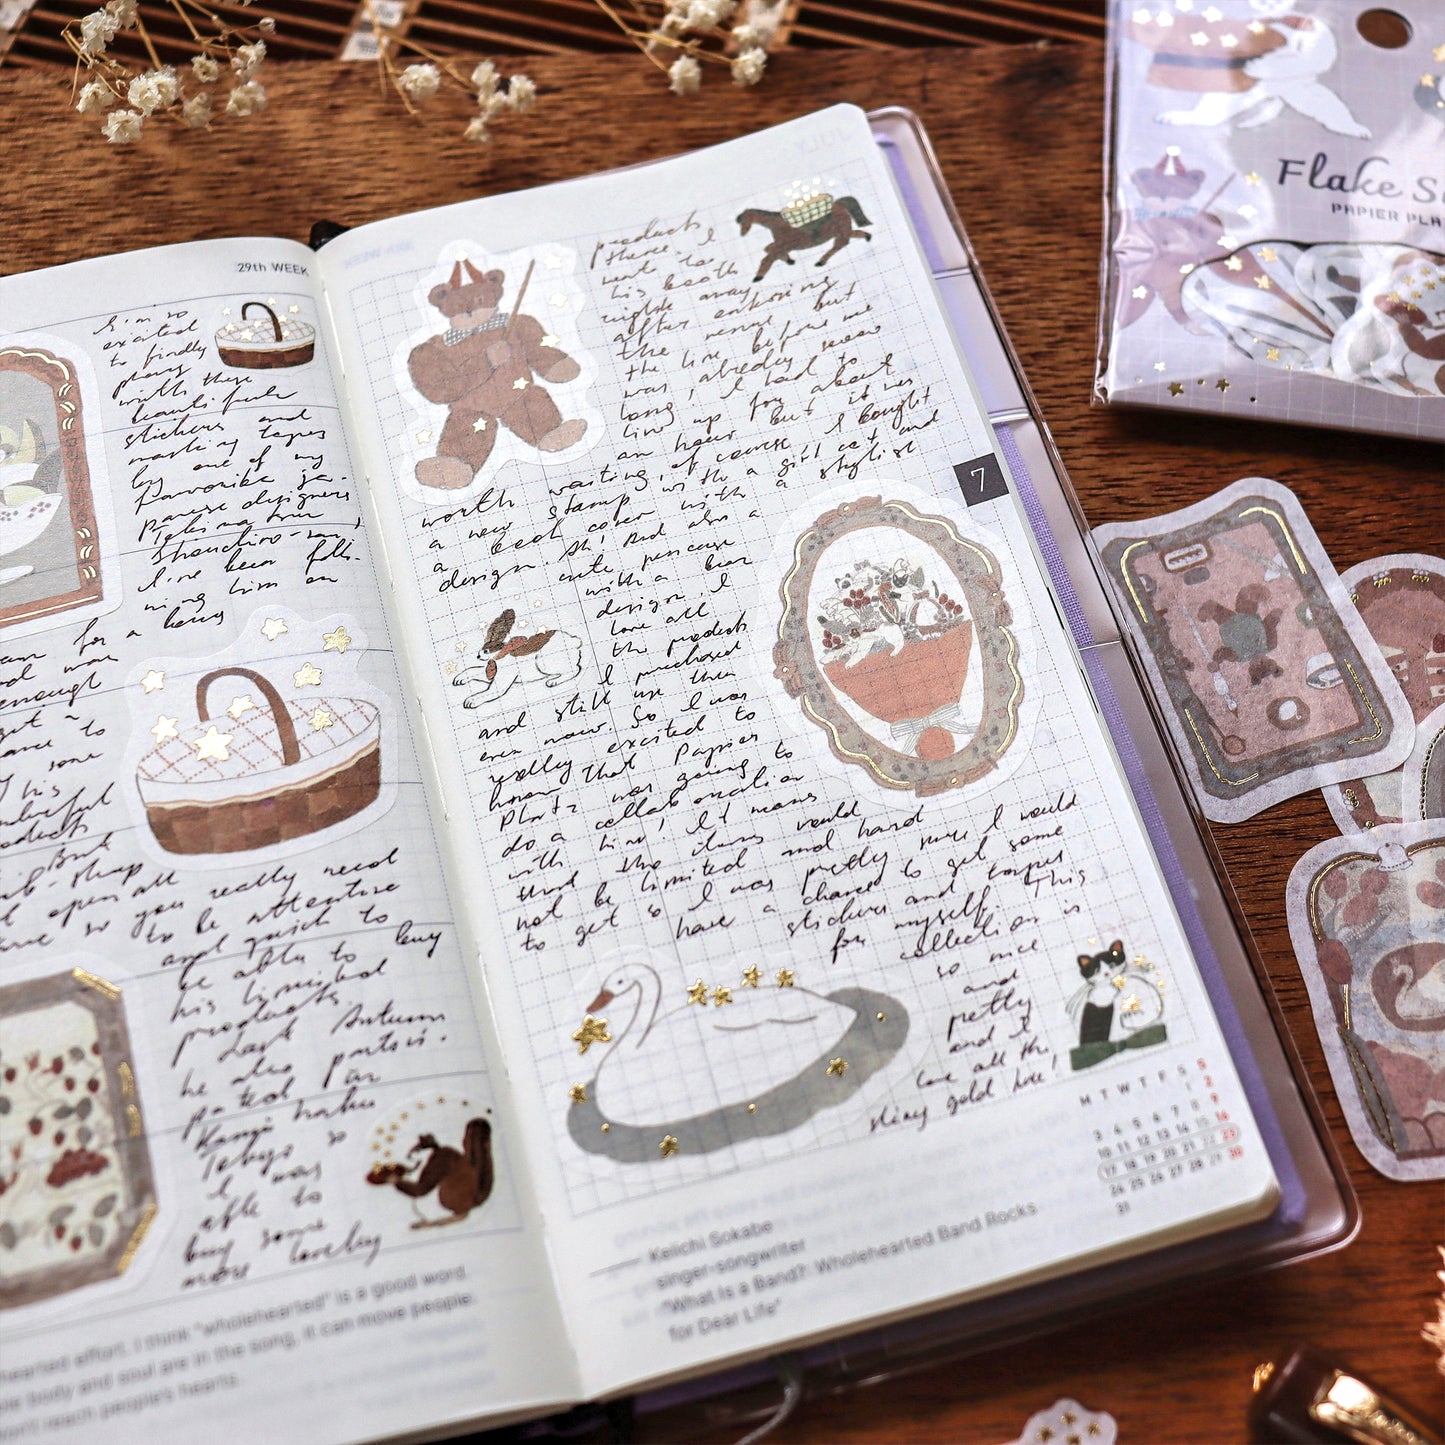 29th WEEK
I'm so
excited
to finally
play
with these
beautiful
stickers and
masking tapes
by one of my
favorite ja-
panese designers
Shouchiro-san,
I've been follo-
wing him on
for a long
and was
enough
get a
chance to
some
his
wonderful
products
But
shop
open all
so you really need
to be attentive
and quick to
be able to buy
his limited
products.
Last Autumn
he also partici-
pated in
Kami haku
Tokyo so
I was
able to
buy some
more lovely
hearted effort. I think "wholehearted" is a good word.
body and soul are in the song, it can move people.
won't reach people's hearts.
products
there. I
went to
his booth
right away
after entering
the venue but
the line before me
was already sooo
long, I had to
line up for about
an hour but it was
worth waiting, of course. I bought
a new stamp with a girl, cat and
a book cover with a stylish
design. Ah! And also a
cute pencase
with a bear
design. I
love all
the products
I purchased
and still use them
even now. So I was
really excited to
know that Papier
Platz was going to
do a collaboration
with him! It means
that the items would
not be limited and hard
to get so I was pretty sure I would
have a chance to get some
stickers and tapes
for myself. This
collection is
so nice
and
pretty
and I
love all the
shiny gold hue!
7
M T W T F S S
1 2
3 4 5 6 7 8 9
10 11 12 13 14 15 16
17 18 19 20 21 22 23
24 25 26 27 28 29 30
31
Keiichi Sokabe
singer-songwriter
"What Is a Band?: Wholehearted Band Rocks
for Dear Life"
Flake
PAPIER PLA